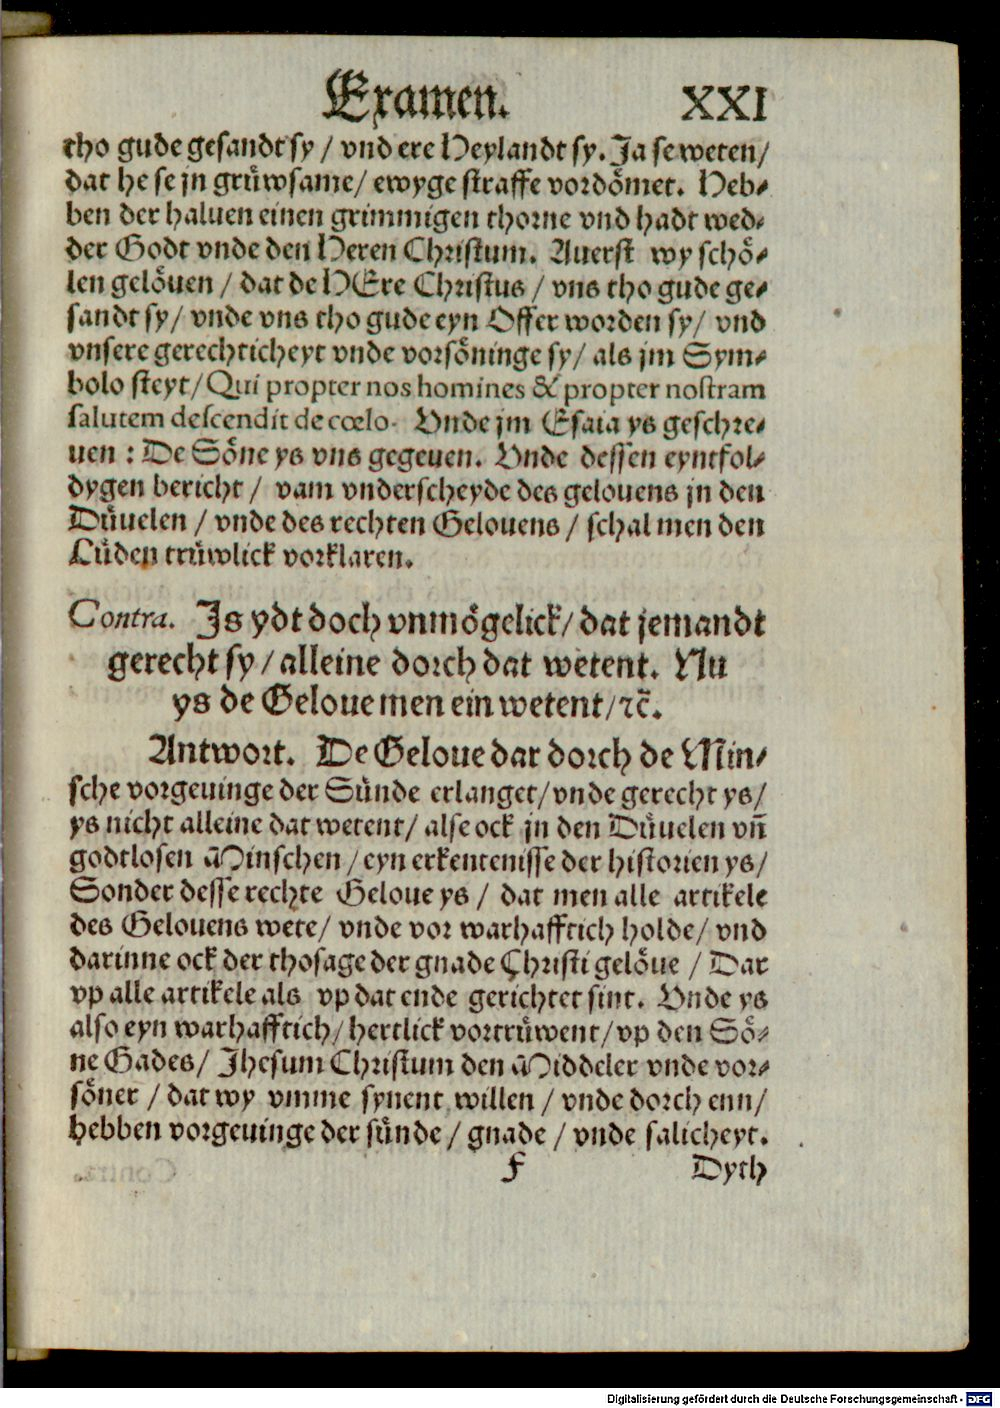 Examen. XXI
tho gude gesandt sy / vnd ere Heylandt sy. Ja se weten /
dat he se jn gruͤwsame / ewyge straffe vordoͤmet. Heb-
ben der haluen einen grimmigen thorne vnd hadt wed-
der Godt vnde den Heren Christum. Auerst wy schoͤ-
len geloͤuen / dat de HEre Christus / vns tho gude ge-
sandt sy / vnde vns tho gude eyn Offer worden sy / vnd
vnsere gerechticheyt vnde vorsoͤninge sy / als jm Sym-
bolo steyt / Qui propter nos homines & propter nostram
salutem descendit de cœlo. Vnde jm Esaia ys geschre-
uen : De Soͤne ys vns gegeuen. Vnde dessen eyntfol-
dygen bericht / vam vnderscheyde des gelouens jn den
Duͤuelen / vnde des rechten Gelouens / schal men den
Luͤden truͤwlick vorklaren.
Contra. Js ydt doch vnmoͤgelick / dat jemandt
gerecht sy / alleine dorch dat wetent. Nu
ys de Geloue men ein wetent / ꝛc̃.
Antwort. De Geloue dar dorch de Min-
sche vorgeuinge der Suͤnde erlanget / vnde gerecht ys /
ys nicht alleine dat wetent / alse ock jn den Duͤuelen vn̄
godtlosen Minschen / eyn erkentenisse der historien ys /
Sonder desse rechte Geloue ys / dat men alle artikele
des Gelouens wete / vnde vor warhafftich holde / vnd
darinne ock der thosage der gnade Christi geloͤue / Dar
vp alle artikele als vp dat ende gerichtet sint. Vnde ys
also eyn warhafftich / hertlick vortruͤwent / vp den Soͤ-
ne Gades / Jhesum Christum den Middeler vnde vor-
soͤner / dat wy vmme synent willen / vnde dorch enn /
hebben vorgeuinge der suͤnde / gnade / vnde salicheyt.
F Dyth
Digitalisierung gefördert durch die Deutsche Forschungsgemeinschaft - DFG